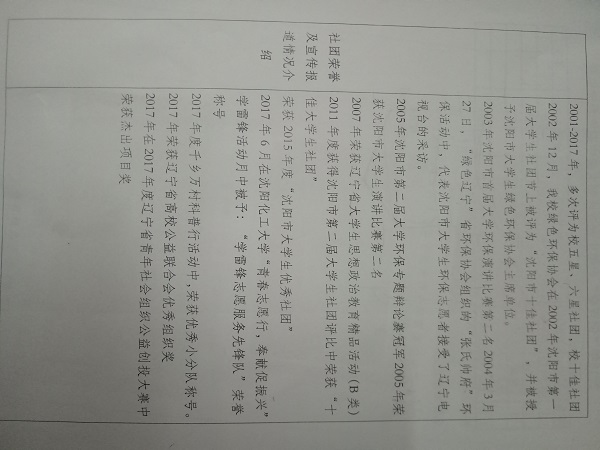 社团荣誉
及宣传报
道情况介
绍
2001-2017年，多次评为校五星、六星社团，校十佳社团
2002年12月，我校绿色环保协会在2002年沈阳市第一
届大学生社团节上被评为“沈阳市十佳社团”，并被授
予沈阳市大学生绿色环保协会主席单位。
2003年沈阳市首届大学环保演讲比赛第二名2004年3月
27日，“绿色辽宁”省环保协会组织的“张氏帅府”环
保活动中，代表沈阳市大学生环保志愿者接受了辽宁电
视台的采访。
2005年沈阳市第二届大学环保专题辩论赛冠军2005年荣
获沈阳市大学生演讲比赛第二名
2007年荣获辽宁省大学生思想政治教育精品活动（B类）
2011年度获得沈阳市第二届大学生社团评比中荣获“十
佳大学生社团”
荣获2015年度“沈阳市大学生优秀社团”
2017年6月在沈阳化工大学“青春志愿行，奉献促振兴”
学雷锋活动月中被予：“学雷锋志愿服务先锋队”荣誉
称号
2017年度千乡万村科普行活动中，荣获优秀小分队称号。
2017年荣获辽宁省高校公益联合会优秀组织奖
2017年在2017年度辽宁省青年社会组织公益创投大赛中
荣获杰出项目奖